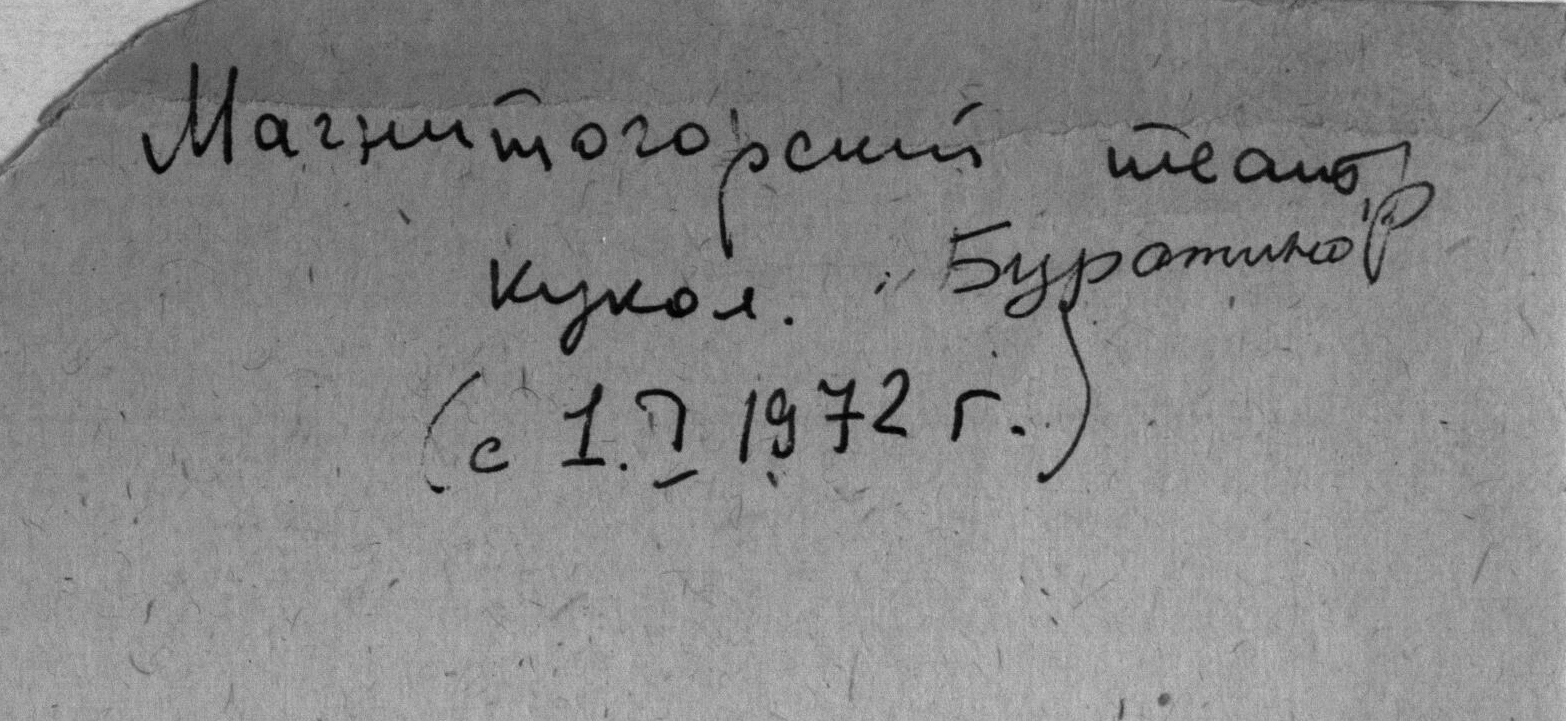 Магнитогорский театр
кукол. „Буратино"
(с 1.I 1972 г.)